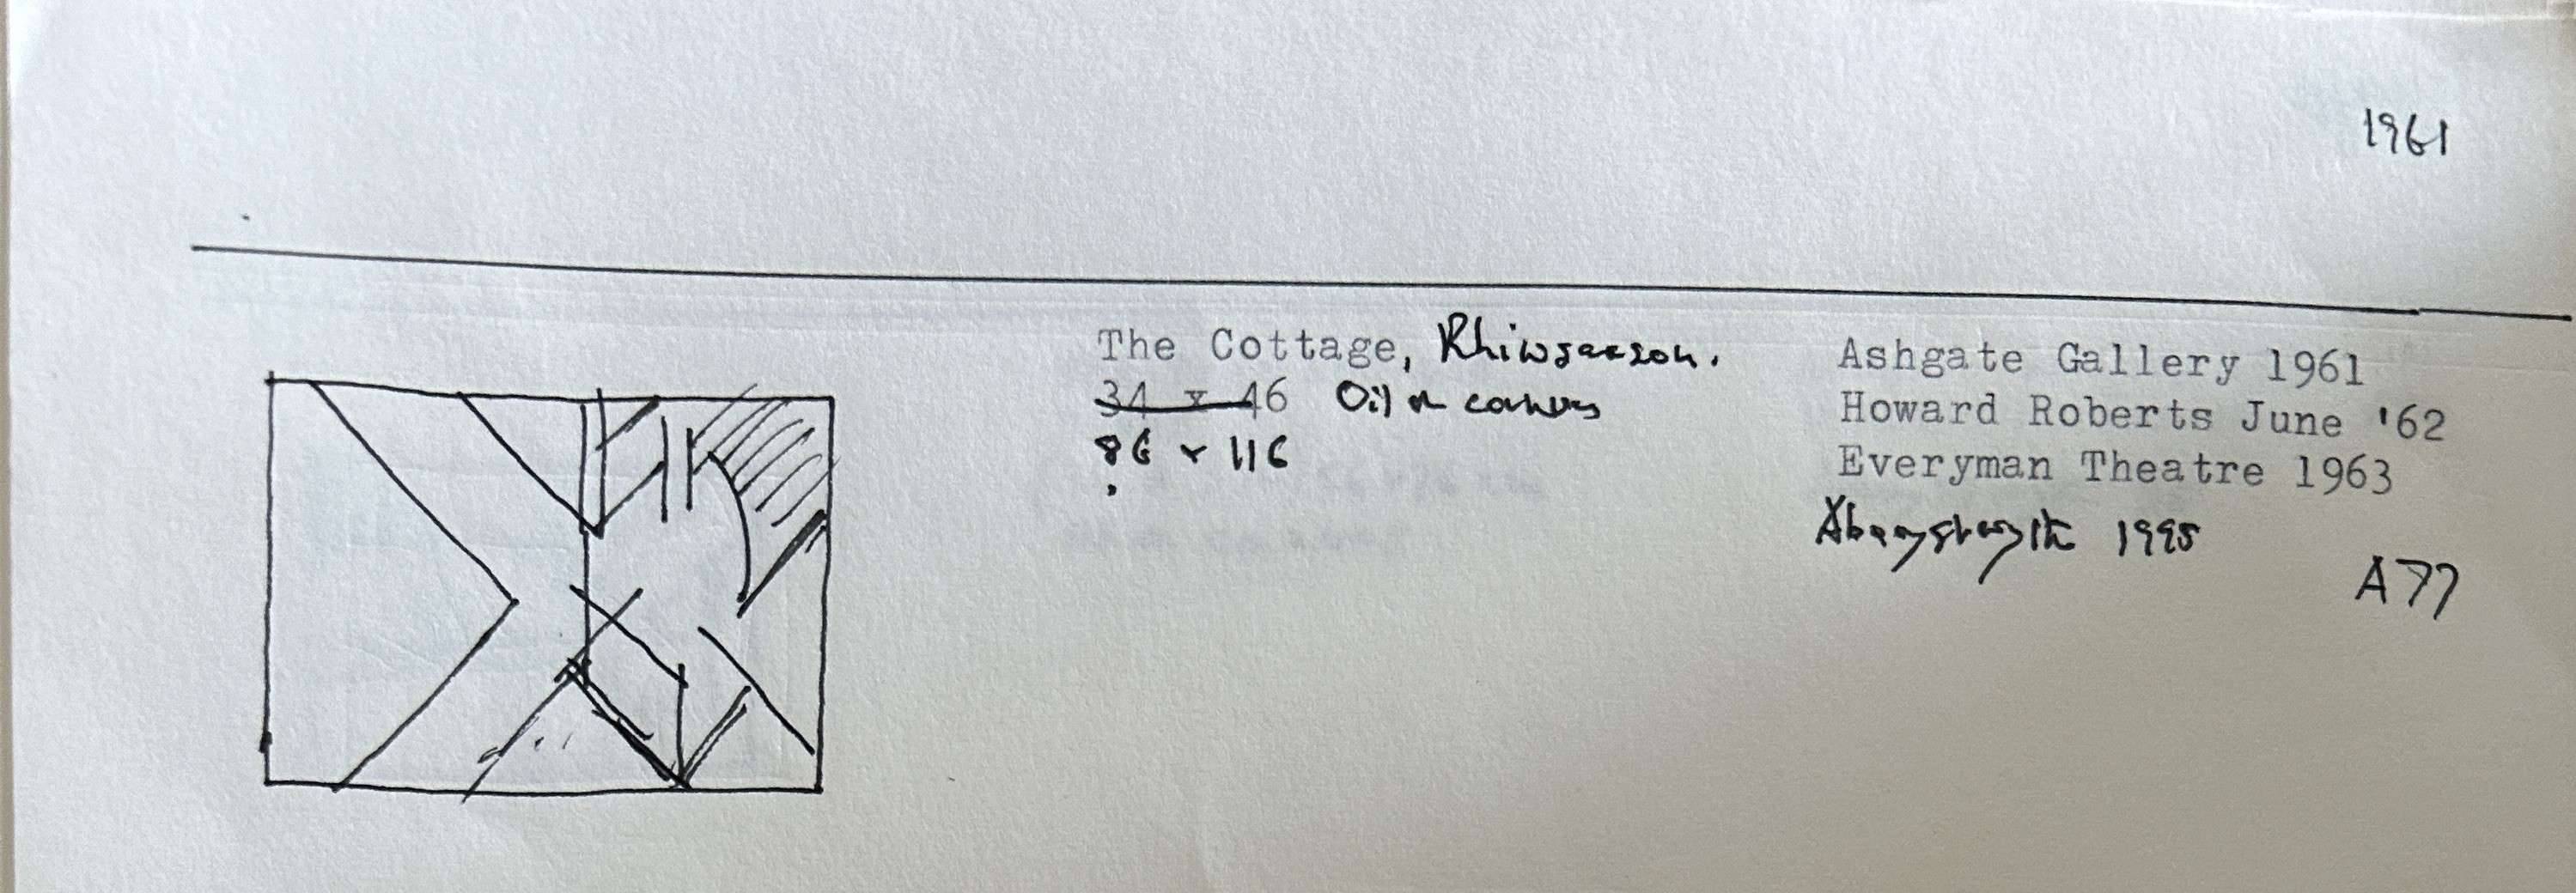 1961
The Cottage, Rhiwsaeson.
34 x 46 Oil on canvas
86 x 116
Ashgate Gallery 1961
Howard Roberts June '62
Everyman Theatre 1963
Aberystwyth 1995
A77